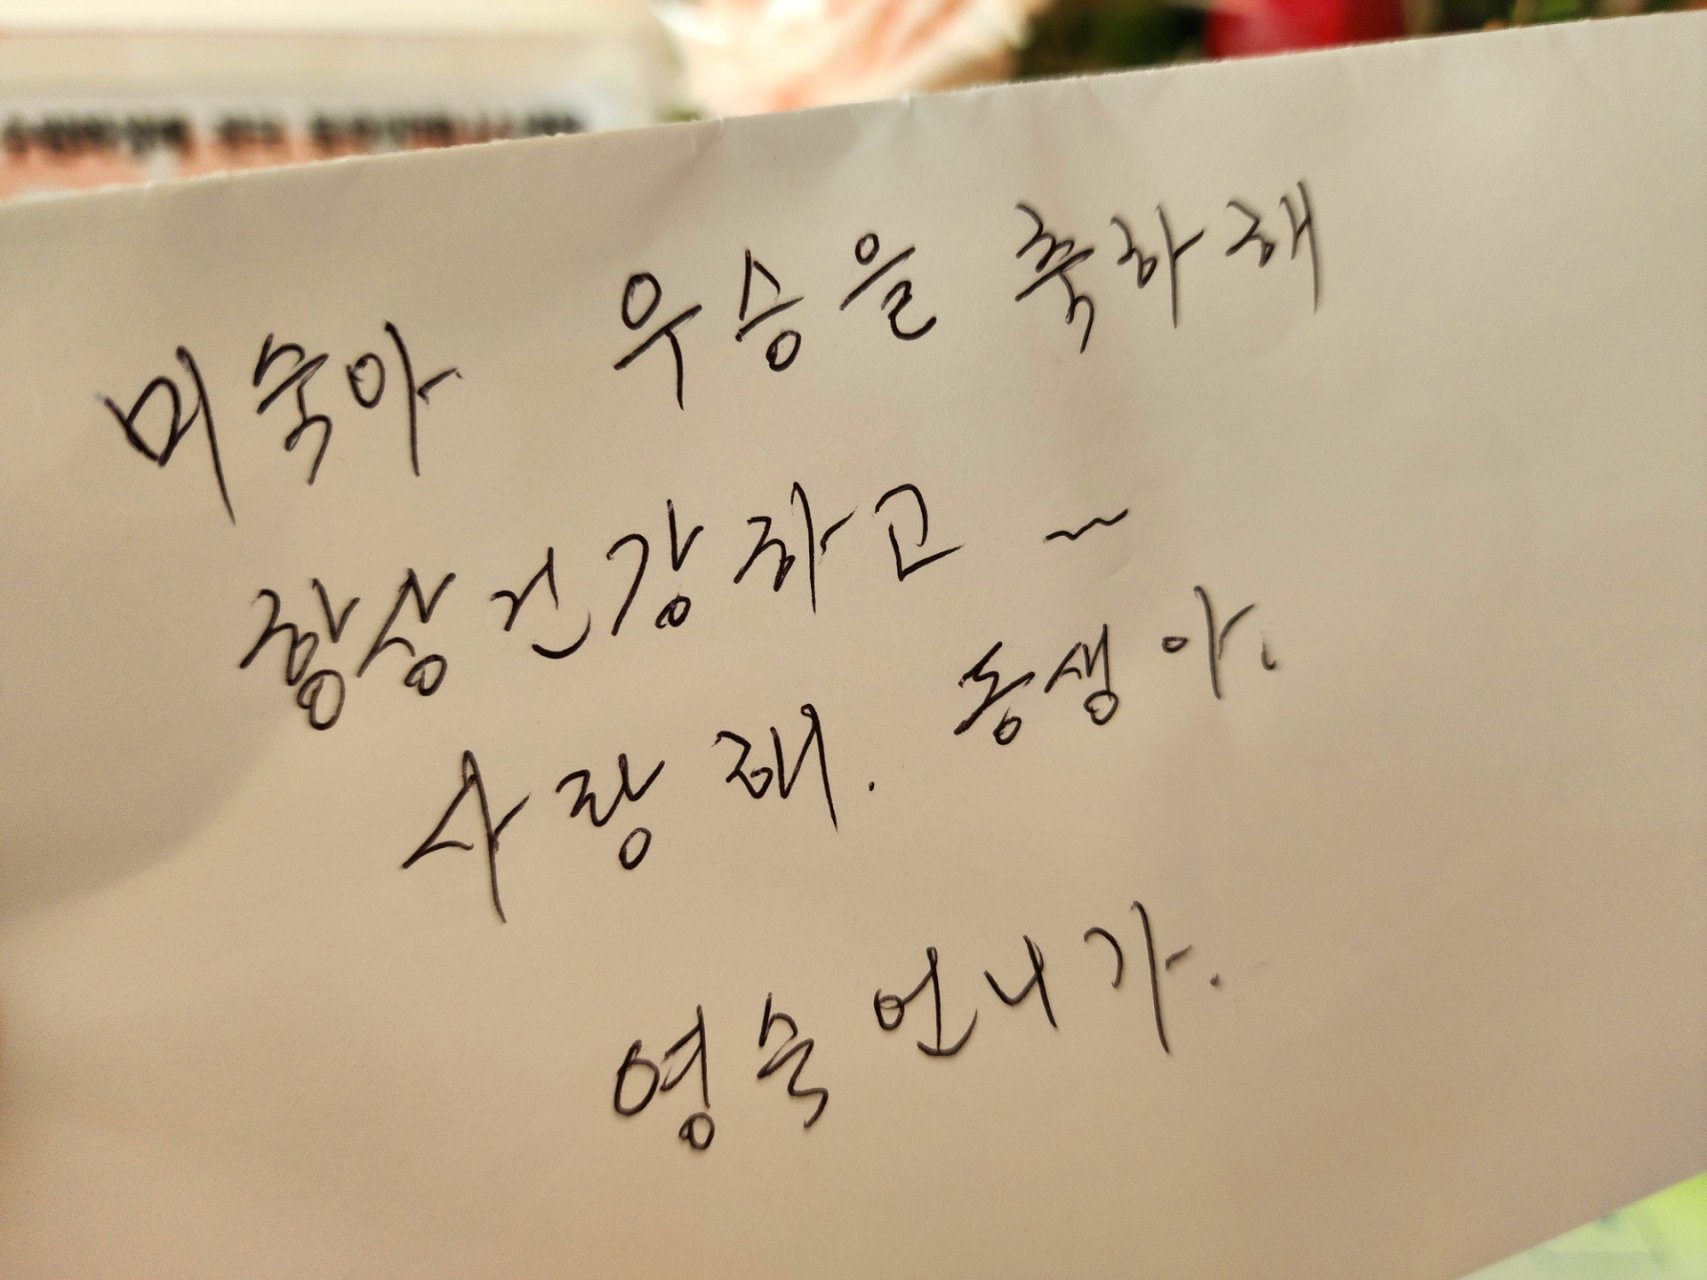 미숙아 우승을 축하해
항상 건강하고 ~
사랑해. 동생아.
영숙 언니가.